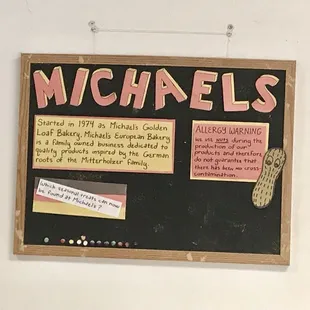 MICHAELS
Started in 1974 as Michaels Golden
Loaf Bakery, Michaels European Bakery,
is a family owned business dedicated to
quality products inspired by the German
roots of the Mitterholzer Family
ALLERGY WARNING
We use nuts during the
production of our
products and therefore
do not guarantee that
there has been no cross-
contamination.
Which seasonal treats can now
be found at Michaels?